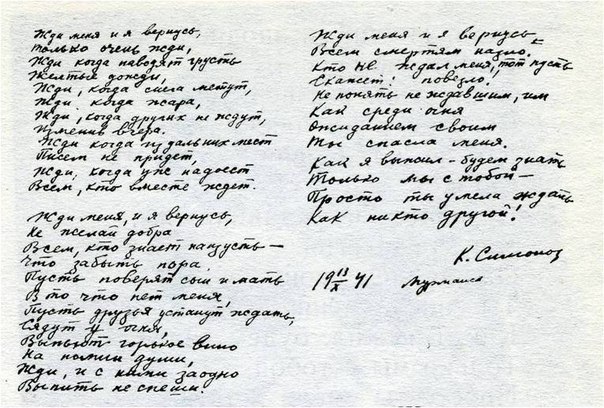 Жди меня и я вернусь,
только очень жди,
Жди когда наводят грусть
Желтые дожди,
Жди, когда снега метут,
Жди когда жара,
Жди, когда других не ждут,
Изменив вчера.
Жди когда из дальних мест
Писем не придет,
Жди, когда уж надоест
Всем, кто вместе ждет.
Жди меня, и я вернусь,
Не желай добра
Всем, кто знает наизусть —
Что забыть пора.
Пусть поверят сын и мать
В то что нет меня,
Пусть друзья устанут ждать,
Сядут у огня,
Выпьют горькое вино
На помин души,
Жди, и с ними заодно
Выпить не спеши.
Жди меня и я вернусь
Всем смертям назло.
Кто не ждал меня, тот пусть
Скажет: повезло,
Не понять не ждавшим, им
Как среди огня
Ожиданием своим
Ты спасла меня.
Как я выжил - будем знать
Только мы с тобой —
Просто ты умела ждать
Как никто другой!
К. Симонов
19 13/X 41 Мурманск